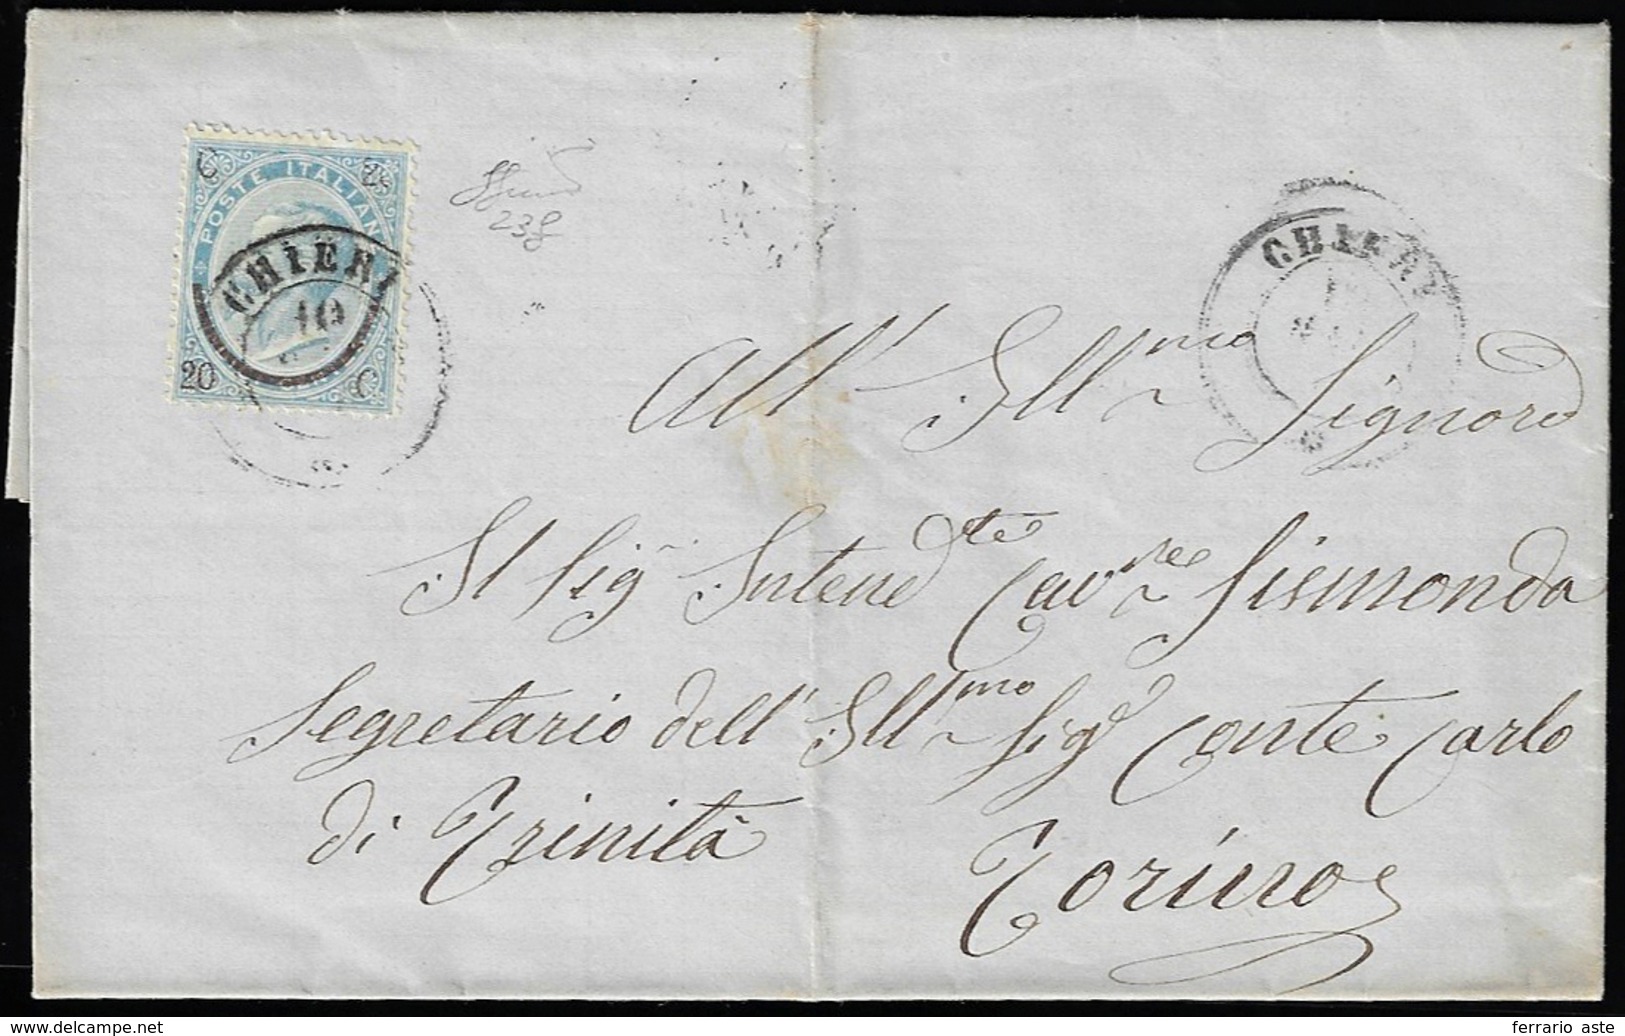 C 20
POSTE ITALIANE
CHIERI
10
20 C
238
CHIERI
All' Ill.mo Signore
Il Sig. Intend.te Cav.re Sismonda
Segretario dell' Ill.mo Sig. Conte Carlo
di Trinità
Torino
delcampe.net
ferrario aste